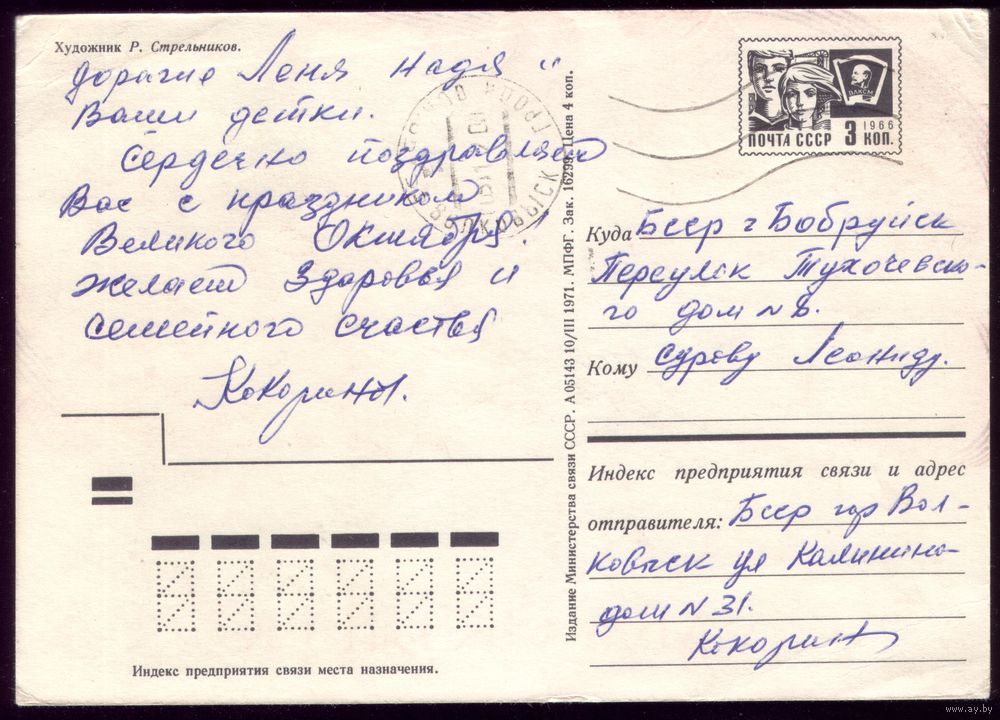 Художник Р. Стрельников.
Дорагие Леня Надя и
Ваши детки.
Сердечно поздравляем
Вас с праздником
Великого Октября!
желаем Здоровья и
семейного счастья
Кокорины.
Индекс предприятия связи места назначения.
Издание Министерства связи СССР. А 05143 10/III 1971. МПФГ. Зак. 16299. Цена 4 коп.
ВЛКСМ
1966
ПОЧТА СССР 3 КОП.
Куда Бсср г Бобруйск
Переулок Тухочевско-
го дом №8.
Кому Сурову Леониду.
Индекс предприятия связи и адрес
отправителя: Бсср гор Вол-
ковыск ул Калинина
дом №31.
Кокорин
www.ay.by